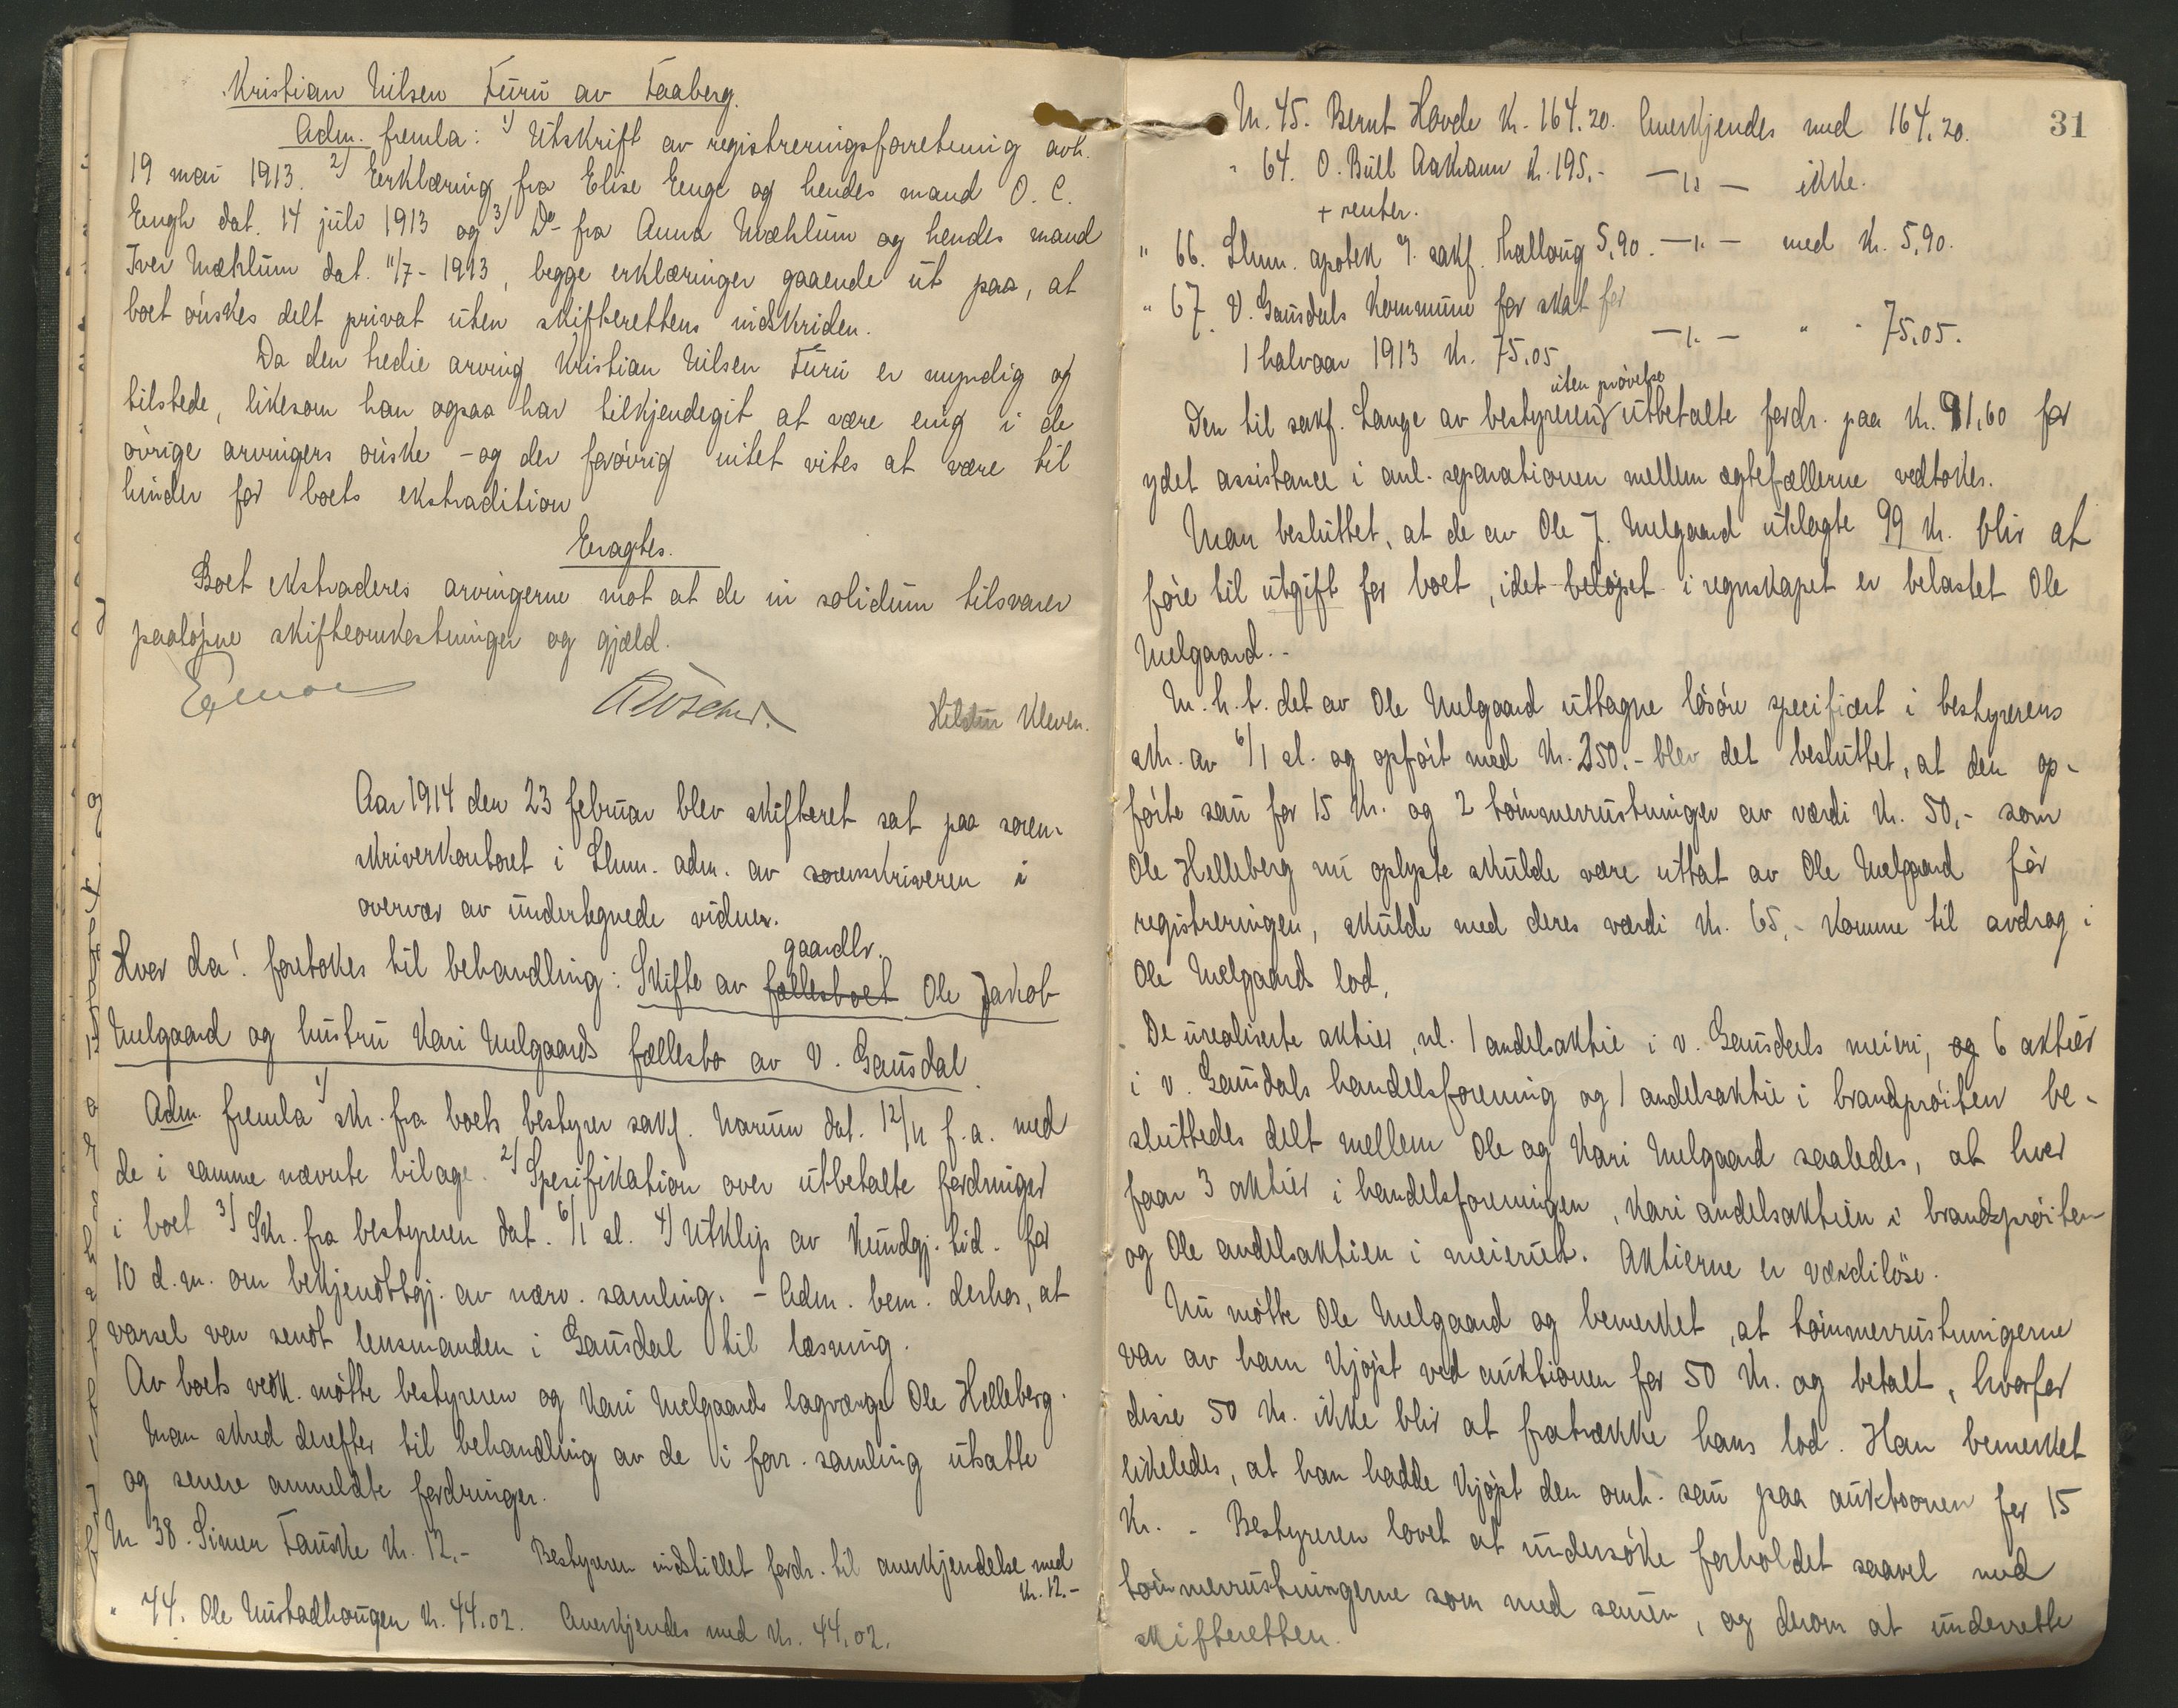 Kristian Nilsen Furu av Faaberg.
Adm. fremla: 1) Utskrift av registreringsforretning avh.
19 mai 1913. 2) Erklæring fra Elise Enge og hendes mand O. C.
Engh dat. 14 juli 1913 og 3) Do fra Anna Mæhlum og hendes mand
Iver Mæhlum dat. 11/7-1913, begge erklæringer gaaende ut paa, at
boet ønskes delt privat uten skifterettens indskriden.
Da den tredie arving Kristian Nilsen Furu er myndig og
tilstede, likesom han ogsaa har tilkjendegit at være enig i de
øvrige arvingers ønske - og der forøvrig intet vites at være til
hinder for boets ekstradition
Eragtes.
Boet ekstraderes arvingerne mot at de in solidum tilsvarer
paaløpne skifteomkostninger og gjæld.
Kleven.
Aar 1914 den 23 februar blev skifteret sat paa soren-
skriverkontoret i Lhm. adm. av sorenskriveren i
overvær av undertegnede vidner.
gaardbr.
Hvor da! foretokes til behandling: Skifte av fællesboet Ole Jakob
Melgaard og hustru Kari Melgaards fællesbo av V. Gausdal.
Adm. fremla 1) skr. fra boets bestyrer sakf. Narum dat. 12/11 f.a. med
de i samme nævnte bilage. 2) Spesifikation over utbetalte fordringer
i boet 3) Skr. fra bestyreren dat. 6/1 sl. 4) Utklip av Kundgj. tid. for
10 d.m. om bekjendtgj. av nærv. samling. - Adm. bem. derhos, at
varsel var sendt lensmanden i Gausdal til læsning.
Av boets vedk. møtte bestyreren og Kari Melgaards lagværge Ole Helleberg.
Man skred derefter til behandling av de i forr. samling utsatte
og senere anmeldte fordringer.
Nr 38. Simen Fauske Kr. 12.- Bestyreren indstillet fordr. til anerkjendelse med
Kr. 12.-
" 44. Ole Nustadhaugen Kr. 44.02. Anerkjendes med Kr. 44.02.
31
Nr. 45. Bernt Hovde Kr. 164.20. Anerkjendes med 164.20.
" 64. O. Bull Aakrann Kr. 195.- —"— ikke.
+ renter.
" 66. Lhm. apotek v. sakf. Thallaug 5,90. —"— med Kr. 5,90.
" 67. V. Gausdals Kommune for skat for
1 halvaar 1913 Kr. 75.05 —"— " " 75.05.
uten prøvelse
Den til sakf. Lange av bestyreren utbetalte fordr. paa Kr. 91,60 for
ydet assistance i anl. separationen mellem ægtefællerne vedtokes.
Man besluttet, at de av Ole J. Melgaard utlagte 99 Kr. blir at
føre til utgift for boet, idet beløpet i regnskapet er belastet Ole
Melgaard.-
M.h.t. det av Ole Melgaard uttagne løsøre specificert i bestyrerens
skr. av 6/1 sl. og opført med Kr. 250.- blev det besluttet, at den op-
førte sau for 15 Kr. og 2 tømmerrustninger av værdi Kr. 50,- som
Ole Helleberg nu oplyste skulde være uttat av Ole Melgaard før
registreringen, skulde med deres værdi Kr. 65,- komme til avdrag i
Ole Melgaards lod.
De urealiserte aktier, nl. 1 andelsaktie i v. Gausdals meieri, og 6 aktier
i v. Gausdals handelsforening og 1 andelsaktie i brandsprøiten be-
sluttedes delt mellem Ole og Kari Melgaard saaledes, at hver
faar 3 aktier i handelsforeningen, Kari andelsaktien i brandsprøiten
og Ole andelsaktien i meieriet. Aktierne er værdiløse.
Nu møtte Ole Melgaard og bemerket, at tømmerrustningerne
var av ham kjøpt ved auktionen for 50 Kr. og betalt, hvorfor
disse 50 Kr. ikke blir at fratrække hans lod. Han bemerket
likeledes, at han hadde kjøpt den omh. sau paa auktionen for 15
Kr. - Bestyreren lovet at undersøke forholdet saavel med
tømmerrustningerne som med sauen, og derom at underrette
skifteretten.